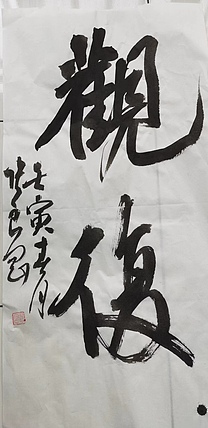 觀復
壬寅春月